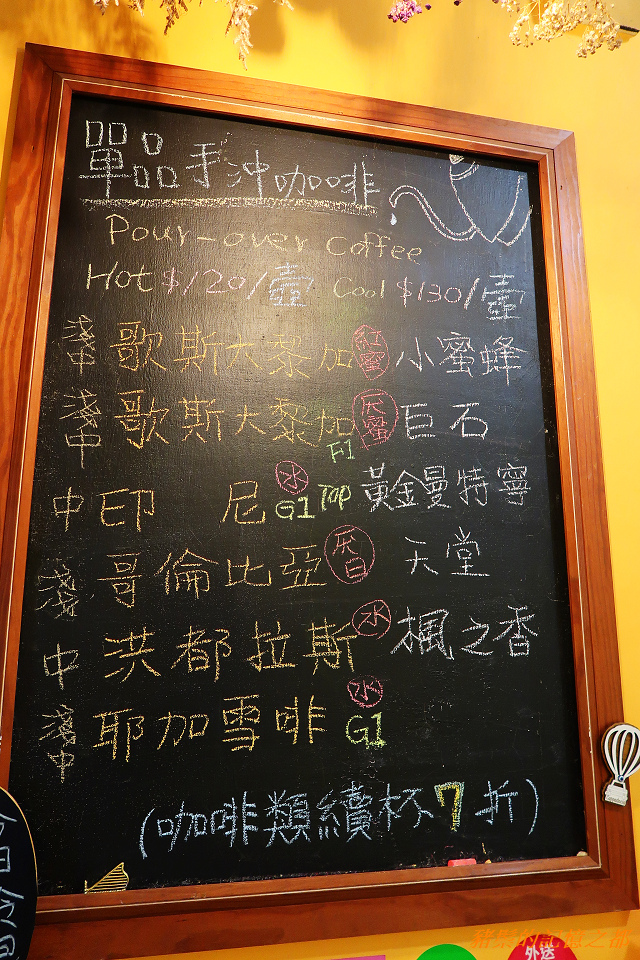 單品手沖咖啡
Pour-over Coffee
Hot $120/壺 Cool $130/壺
淺中 歌斯大黎加 紅蜜 小蜜蜂
淺中 歌斯大黎加 灰蜜 F1 巨石
中 印尼 水 G1 Top 黃金曼特寧
淺 哥倫比亞 厌白 天堂
中 洪都拉斯 水 楓之香
淺中 耶加雪啡 水 G1
(咖啡類續杯7折)
今日
外送